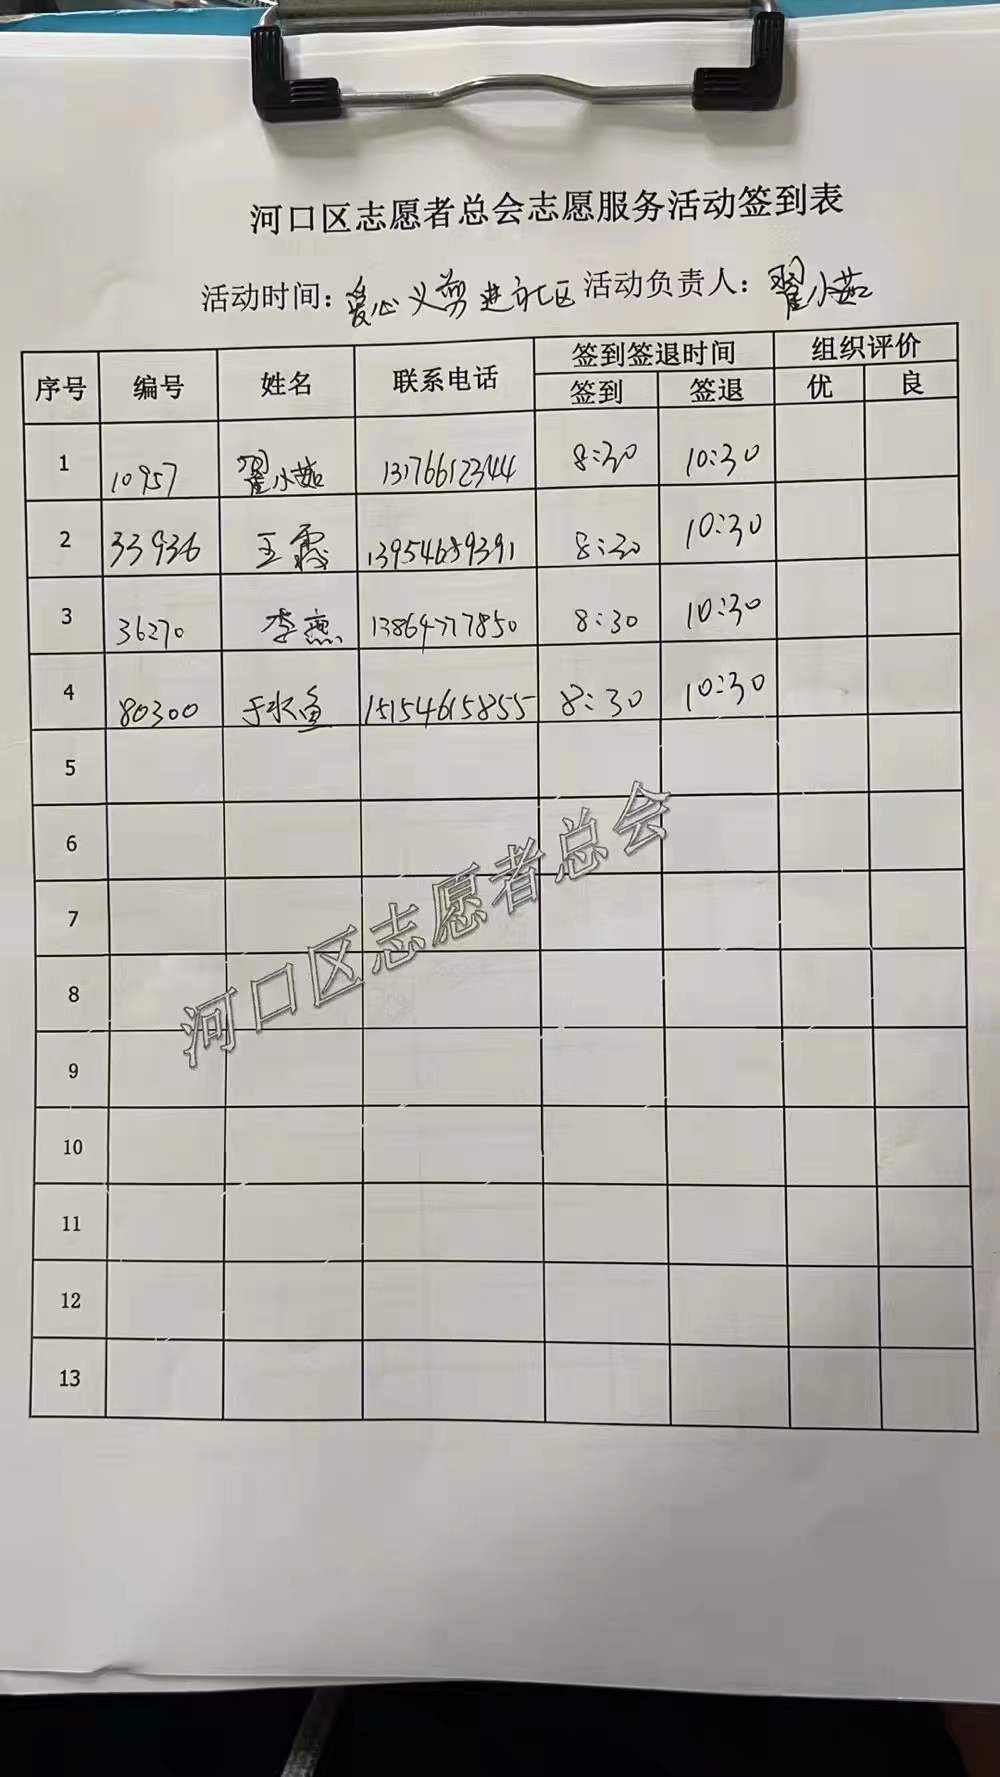 河口区志愿者总会志愿服务活动签到表
活动时间：爱心义剪进社区 活动负责人：翟小茹
序号 编号 姓名 联系电话 签到签退时间 组织评价
签到 签退 优 良
1 10957 翟小茹 13176612344 8:30 10:30
2 33936 王霞 13954689391 8:30 10:30
3 36270 李燕 13864777850 8:30 10:30
4 80300 于水鱼 15154615855 8:30 10:30
5
6
7
8
9
10
11
12
13
河口区志愿者总会